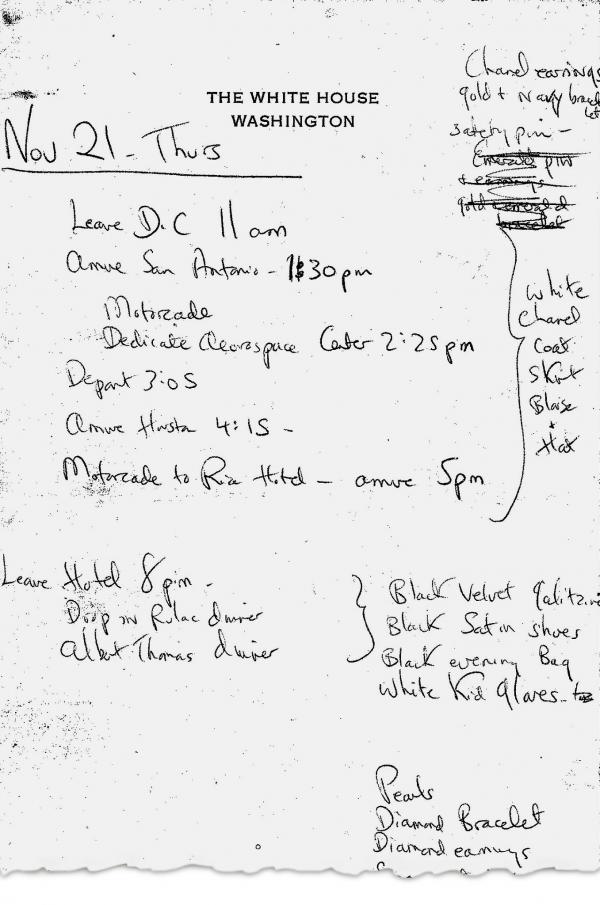 THE WHITE HOUSE
WASHINGTON
Chanel earrings
gold + Navy brace
let
safety pin -
Emerald pin
+ earrings
gold emerald
bracelet
Nov 21 - Thurs
Leave D.C 11 am
arrive San Antonio - 1:30 pm
Motorcade
Dedicate Aerospace Center 2:25 pm
Depart 3:05
arrive Houston 4:15 -
Motorcade to Rice Hotel - arrive 5pm
white
chanel
coat
skirt
Blouse
+
Hat
Leave Hotel 8 pm -
Drop in dinner
Albert Thomas dinner
Black Velvet galitzine
Black Satin shoes
Black evening Bag
White Kid gloves -
Pearls
Diamond Bracelet
Diamond earrings